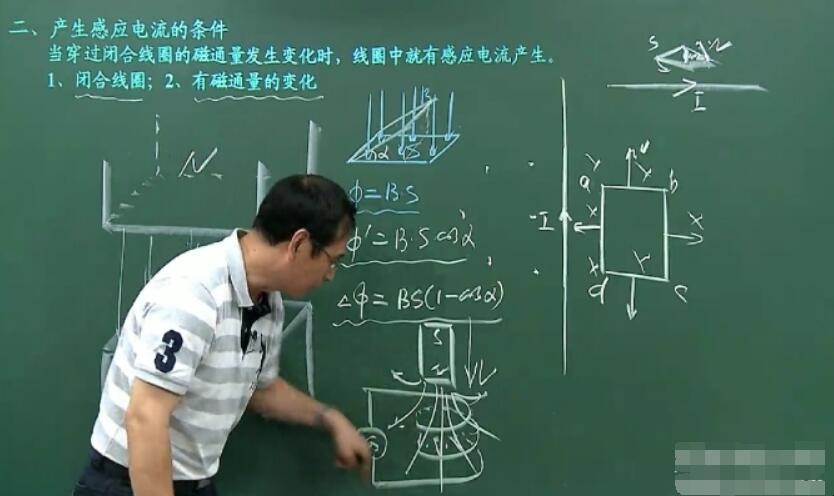 二、产生感应电流的条件
当穿过闭合线圈的磁通量发生变化时，线圈中就有感应电流产生。
1、闭合线圈；2、有磁通量的变化
S N
S
I
N
B
α S
Φ=B·S
Φ'=B·S cosα
△Φ=BS(1-cosα)
I
a b
x
x x
x
d c
S
N
G
3